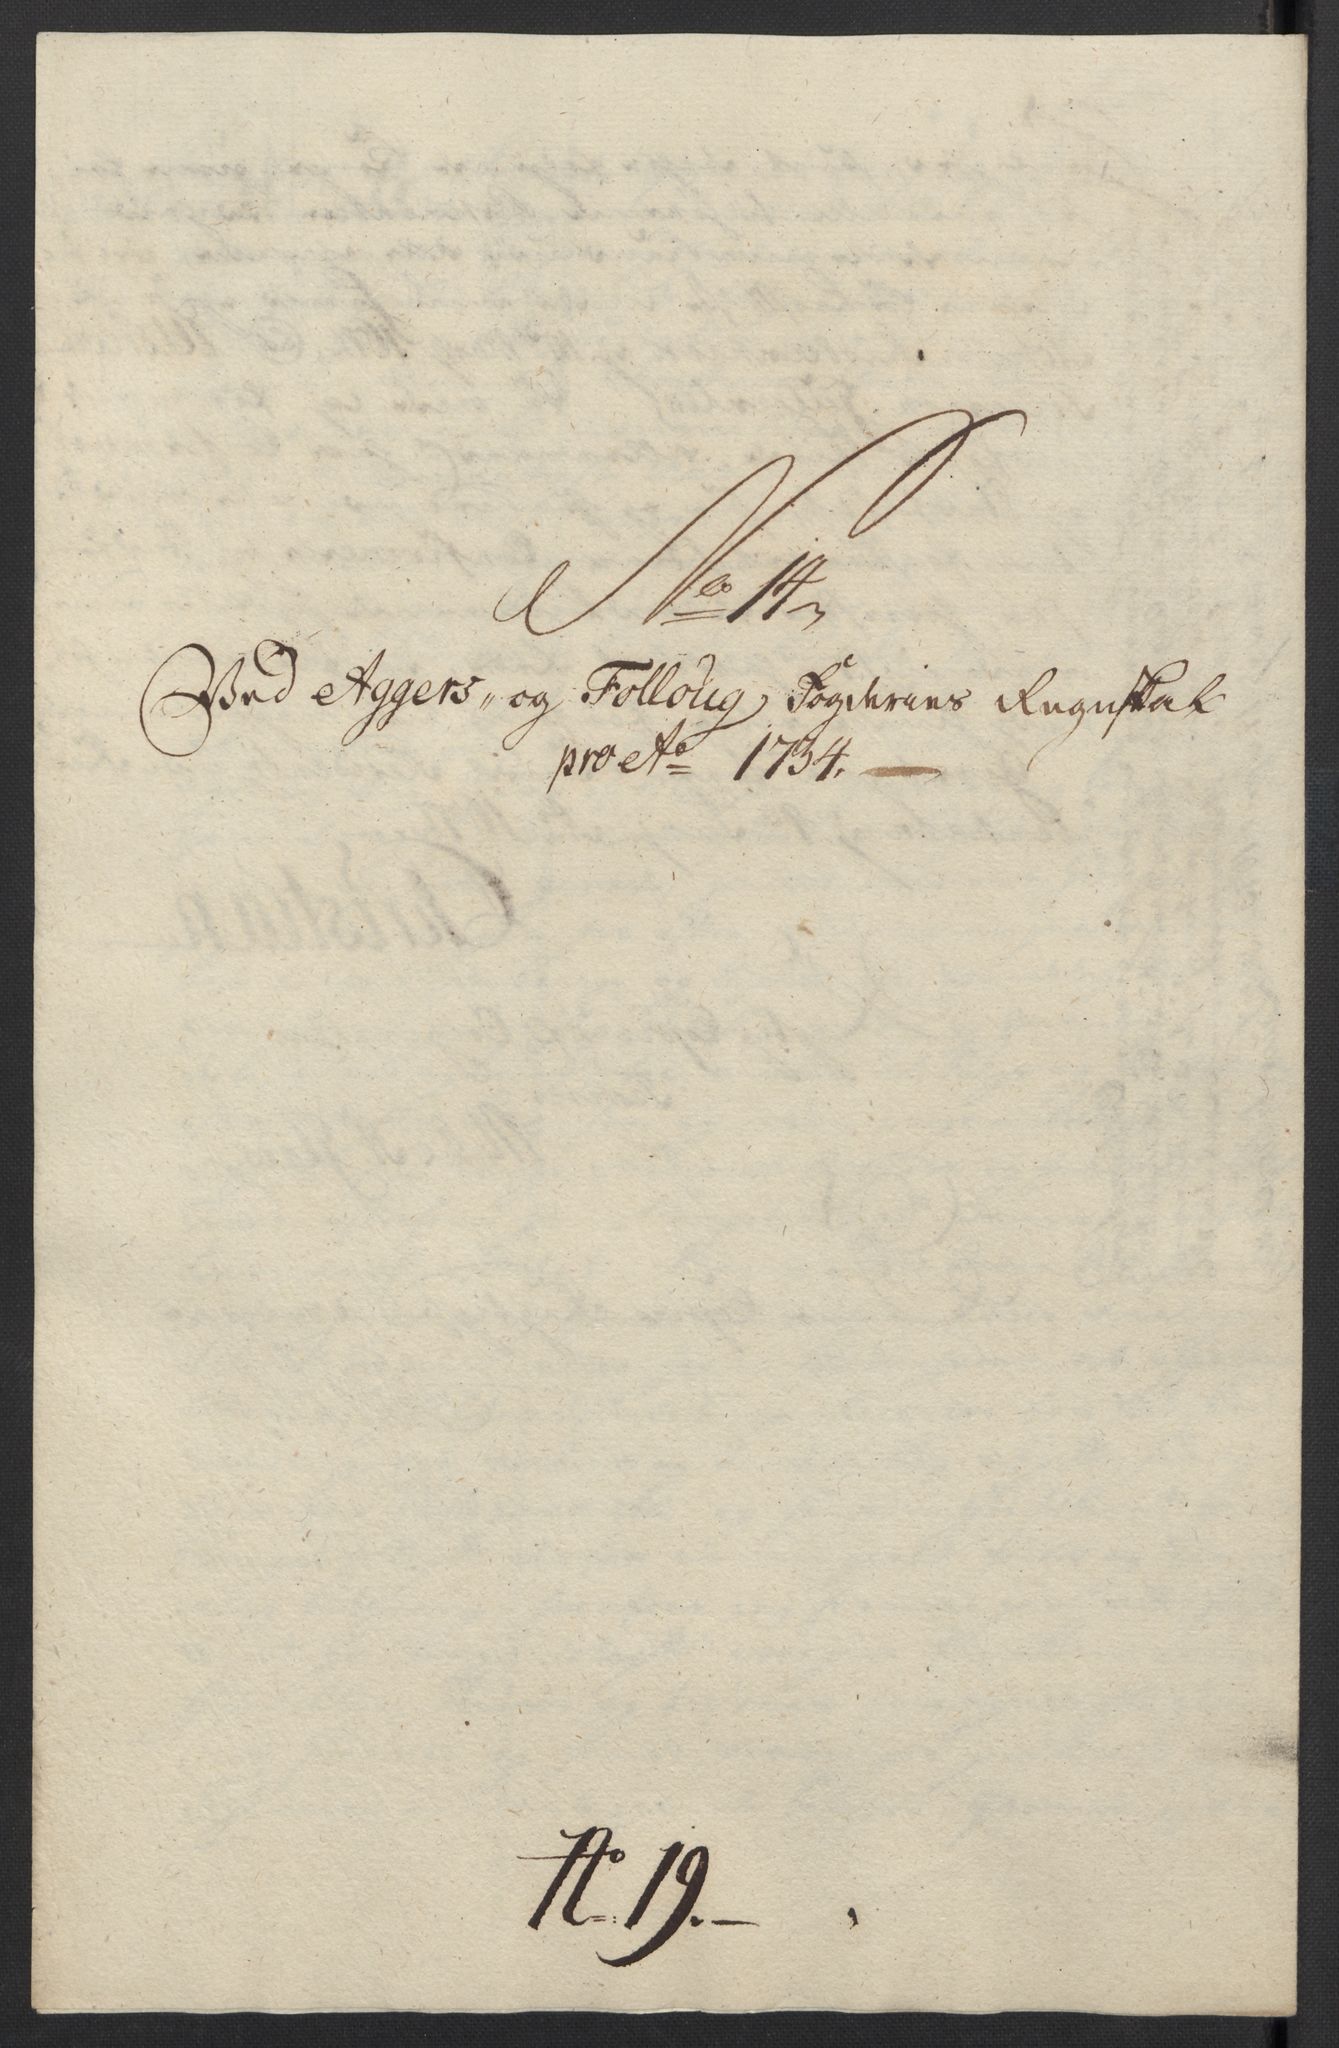 No 14
Ved Aggers- og Folloug Fogderies Regnskab
pro Ao 1734.
No 19.